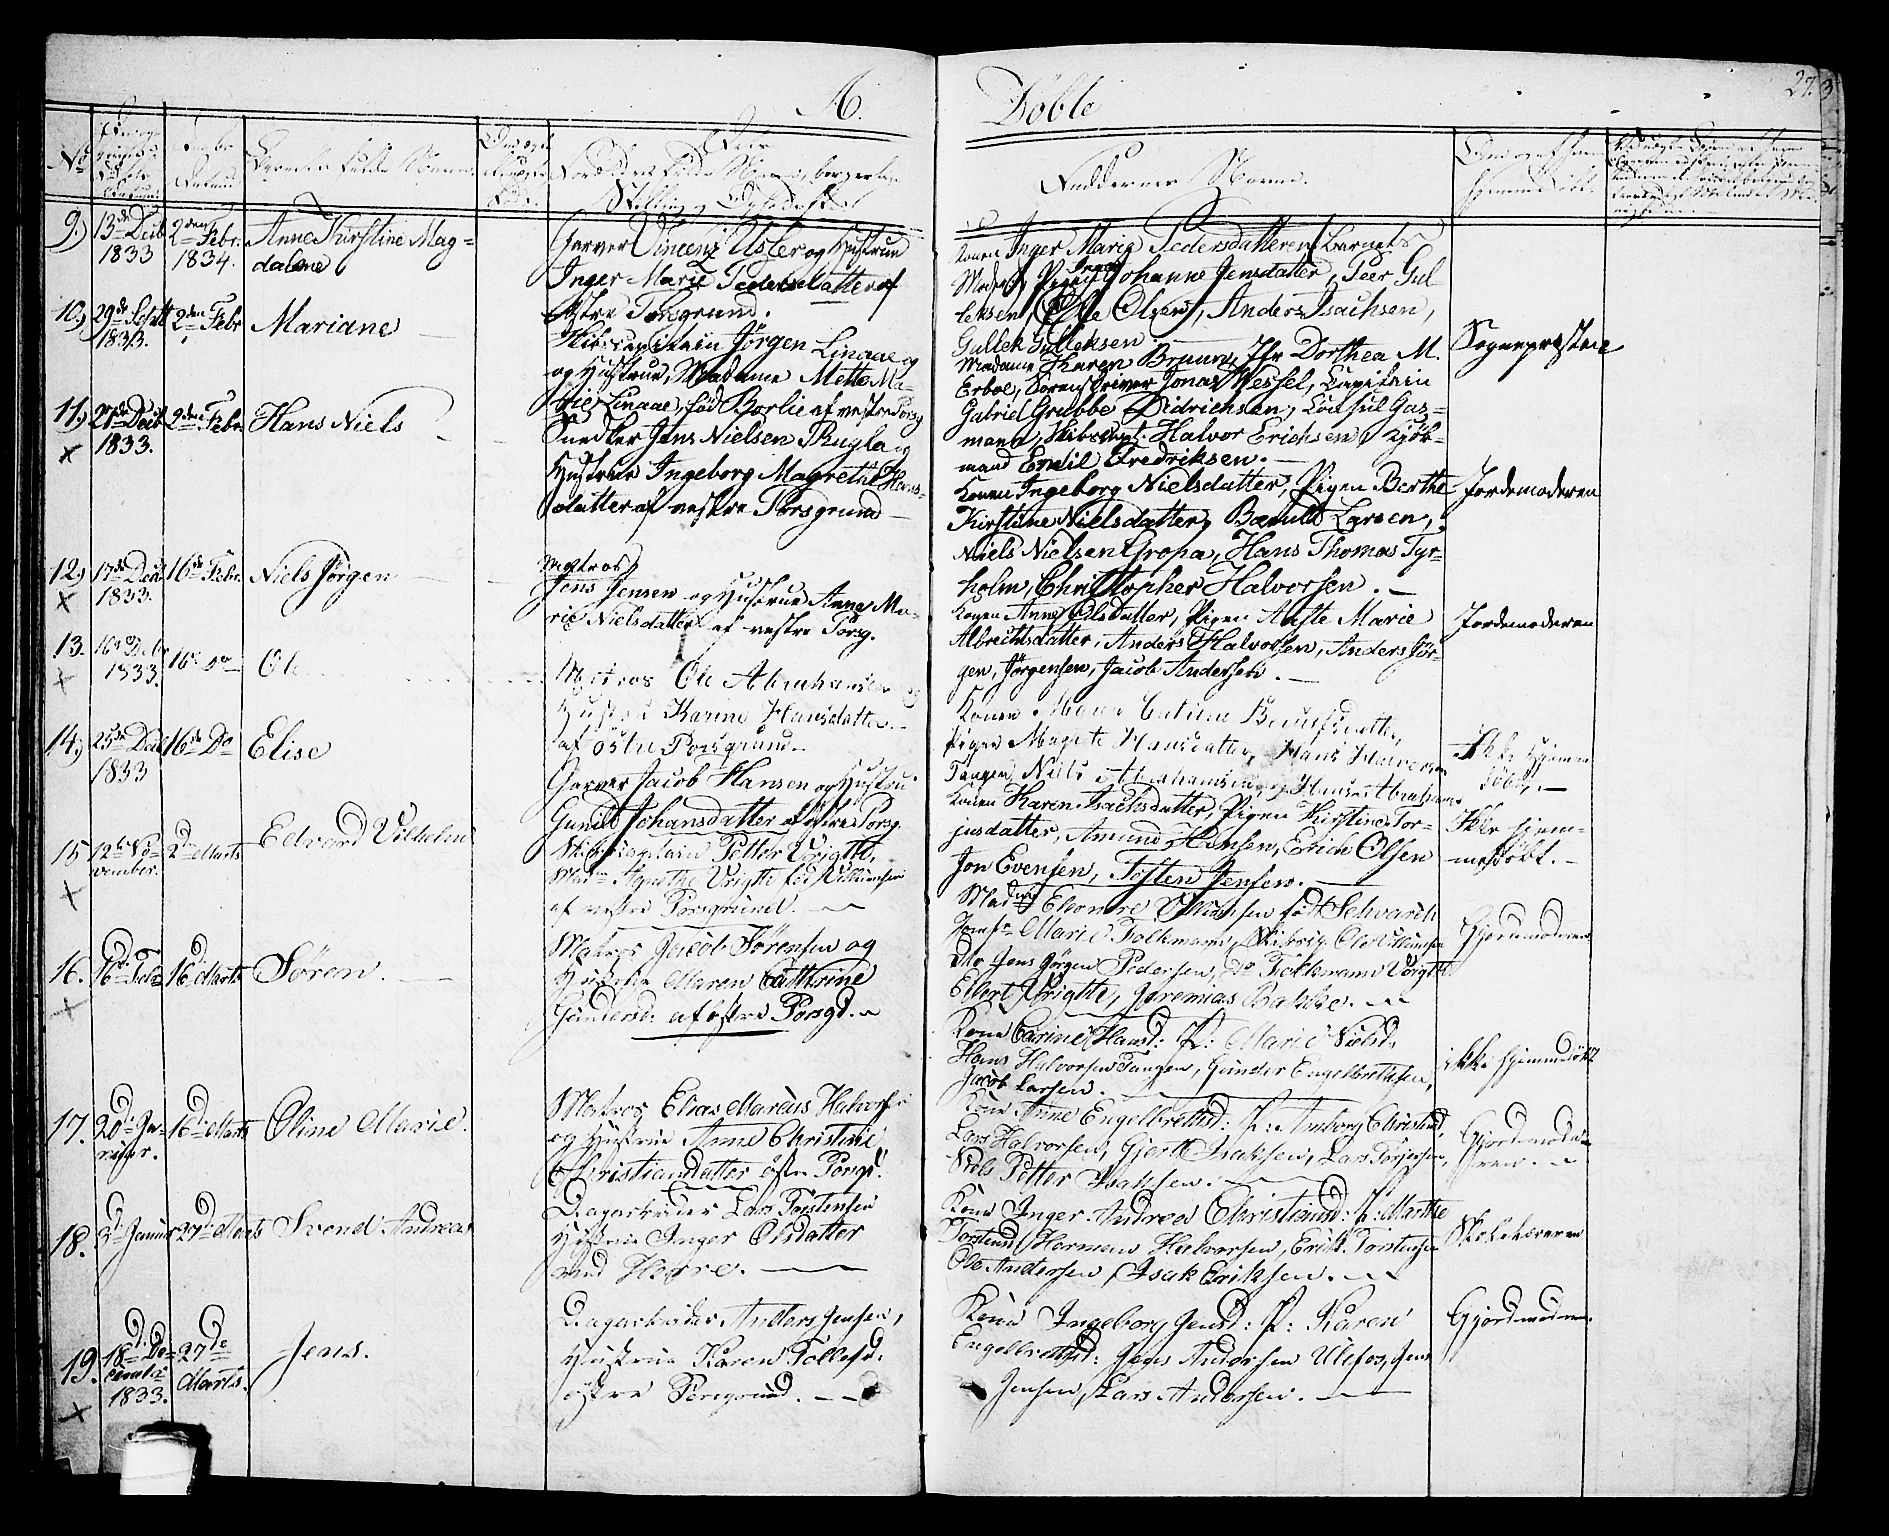 A.
Döbte
27.
No
Barnets fulde Navn.
Forældres fulde Navne, borgerlige
Stilling og
Faddernes Navne.
9.) 13de Decb 1833 2den Febr. 1834. Anne Kirstine Mag=
dalene
Garver Vincenz Usler og Hustrue
Inger Marie Pedersdatter af
Østre Porsgrund.
Konen Inger Marie Pedersdatteren, Barnets
Moder, Pigen Inger Johanne Jensdatter, Peer Gul
leksen, Ole Olsen, Anders Isachsen,
Gullek Gulleksen.
10.) 29de Septb 1833. 2den Febr Mariane
Skibscapitain Jörgen Linaae og
og Hustrue, Madame Mette Ma-
rie Linaae, född Borlie af vestre Porsg
Madame Karen Bruun, Jfr Dorthea M.
Erboe, Sorenskriver Jonas Wessel, Capitain
Gabriel Grubbe Didrichsen, Consul Gas=
mann, Skibscapt. Halvor Erichsen, Kjöb=
mand Emil Fredriksen.
Sognepræsten
11.) 27de Decb 1833. 2den Febr. Hans Niels
Snedker Jens Nielsen Rugla og
Hustrue Ingeborg Magrethe Hans=
datter af vestre Porsgrund
Konen Ingeborg Nielsdatter, Pigen Berthe
Kirstine Nielsdatter, Larsen,
Niels Nielsen Gropa, Hans Thomas Tyr=
holm, Christopher Halvorsen.
Jordemoderen
12.) 17de Decb 1833. 16de Febr. Niels Jörgen
Matros
Jens Jensen og Hustrue Anne Ma-
rie Nielsdatter af vestre Porsg.
Konen Anne Olsdatter, Pigen Marie
Albrechtsdatter, Anders Halvorsen, Anders Jör-
gen, Jörgensen, Jacob Andersen.
Jordemoderen
13. 16de Decbr 1833. 16de Do Ole
Matros Ole Abrahamsen og
Hustrue Karine Hansdatter
af östre Porsgrund
Konen
Pigen Magrete Hansdatter, Hans Halvorsen
Tangen, Niels Abrahamsen, og Hans Abrahamsen
Ikke hjemme
döbt,
14.) 25de Decb 1833 16de Do Elise
Garver Jacob Hansen og Hustrue
Gunild Johansdatter af östre Porsg.
Konen Karen Isachsdatter, Pigen Kirstine Tor=
jusdatter, Amund Hansen, Erich Olsen
Jon Evensen, Tosten Jensen.
Ikke hjem=
medöbt.
15 12te No-
vember. 2den Marts Edvard Vilhelm
Skibscaptain Petter Wrigtt,
Madm Agnethe Wrigtt född Villumsen
af vestre Porsgrund.
Madme Eleonore Villumsen född Schvarch
Jomfr. Marie Folkmann, Skibscp. Ole Villumsen
Do Jens Jörgen Pedersen, Do Folkmann Wrigtt
Eilert Wrigtt, Jeremias Bakke.
Gjordemoderen
16. 16de Febr. 16de Marts Sören.
Matros Jacob Sörensen og
Hustrue Maren Cathrine
Gundersd: af östre Porsgd.
Kone Carine Hansd: P: Marie Nielsd:
Hans Halvorsen Tangen, Gunder Engelbrethsen,
Jacob Larsen.
ikke hjemmedöbt
17. 20de Ja-
nuar. 16de Marts Oline Marie.
Matros Elias Marcus Halvorsen
og Hustrue Anne Christine
Christiansdatter östre Porsgd.
Kone Anne Engelbrethsd: P: Christensd,
Lars Halvorsen, Gjertt Isaksen, Lars Torjersen,
Niels Petter Isaksen.
Gjordemode=
ren.
18. 3de Januar 27de Marts Svend Andreas
Dagarbeider Lars Torstensen
Hustrue Inger Olsdatter
ved Herre.
Kone Inger Andrea Christiansd: P: Marthe
Torstensd, Herman Halvorsen, Erik Torstensen
Ole Andersen, Isak Eriksen.
Skolelæreren
19. 18de De-
cember 1833. 27de Marts. Jens.
Dagarbeider Anders Jensen,
Hustrue Karen Tollefsd:
östre Porsgrund.
Kone Ingeborg Jensd: P: Karen
Engelbrethsd: Jens Andersen Ulefos, Jens
Jensen, Lars Andersen.
Gjordemoderen.